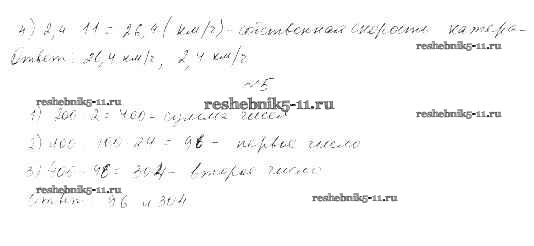 4) 2,4 · 11 = 26,4 (км/ч) - собственная скорость катера.
Ответ: 26,4 км/ч, 2,4 км/ч
№5
reshebnik5-11.ru reshebnik5-11.ru reshebnik5-11.ru
1) 200 · 2 = 400 - сумма чисел
2) 400 : 100 · 24 = 96 - первое число
3) 400 - 96 = 304 - второе число
reshebnik5-11.ru reshebnik5-11.ru
Ответ: 96 и 304